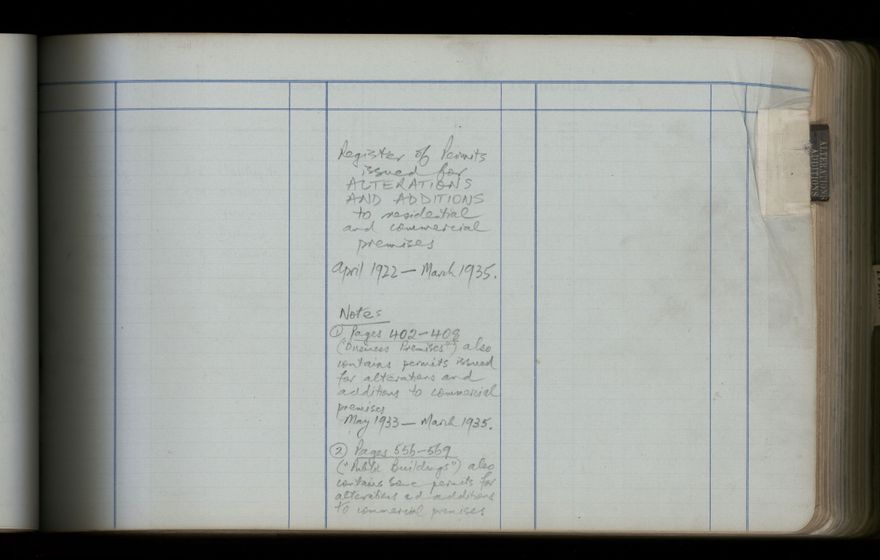 Register of Permits
issued for
ALTERATIONS
AND ADDITIONS
to residential
and commercial
premises
April 1922 — March 1935.
Notes
① Pages 402-408
("Business Premises") also
contains permits issued
for alterations and
additions to commercial
premises
May 1933 — March 1935.
② Pages 556-569
("Public Buildings") also
contains some permits for
alterations ad additions
to commercial premises
ALTERATIONS
ADDITIONS